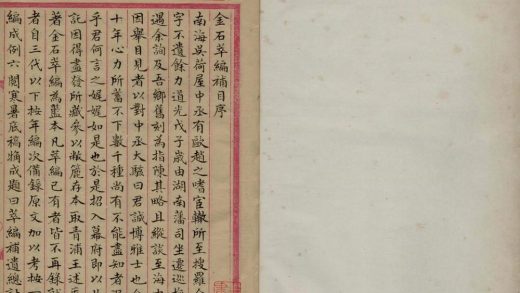 金石萃編補目序
南海吳荷屋中丞有歐趙之嗜官轍所至搜羅金
字不遺餘力道光戊子歲由湖南藩司坐遷巡撫
遇余詢及吾鄉舊刻為指陳其略且縱談至海
因舉目見者以對中丞大駭曰君誠博雅士也
十年心力所蓄不下數千種尚有不能盡知者
乎君何言之娓娓如是也於是招入幕府即以
託因得盡發所藏參以敝簏存本取青浦王述
著金石萃編為藍本凡萃編已有者皆不再錄
者自三代以下按年編次備錄原文加以考按
編成例六閱寒暑底稿成題曰萃編補遺總